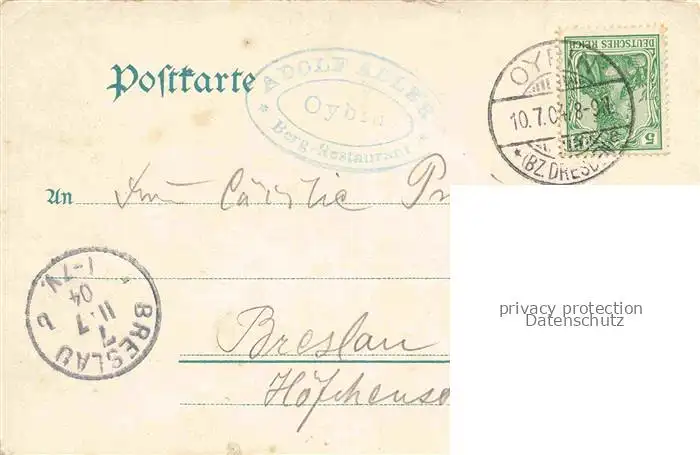 Postkarte
ADOLF ADLER
Oybin
Berg-Restaurant
DEUTSCHES REICH
5
OYBIN
10.7.04 8-9
(BZ. DRESD
An
BRESLAU
11.7
04
1-7V.
Breslau
privacy protection
Datenschutz